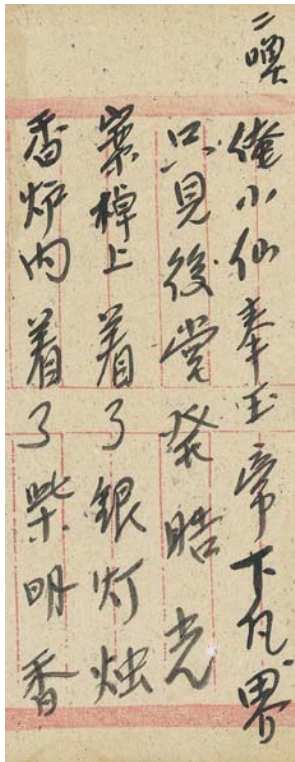 二嘆
俺小仙奉玉帝下凡界
只見後堂發晧光
案棹上着了銀灯烛
香炉内着了柴明香